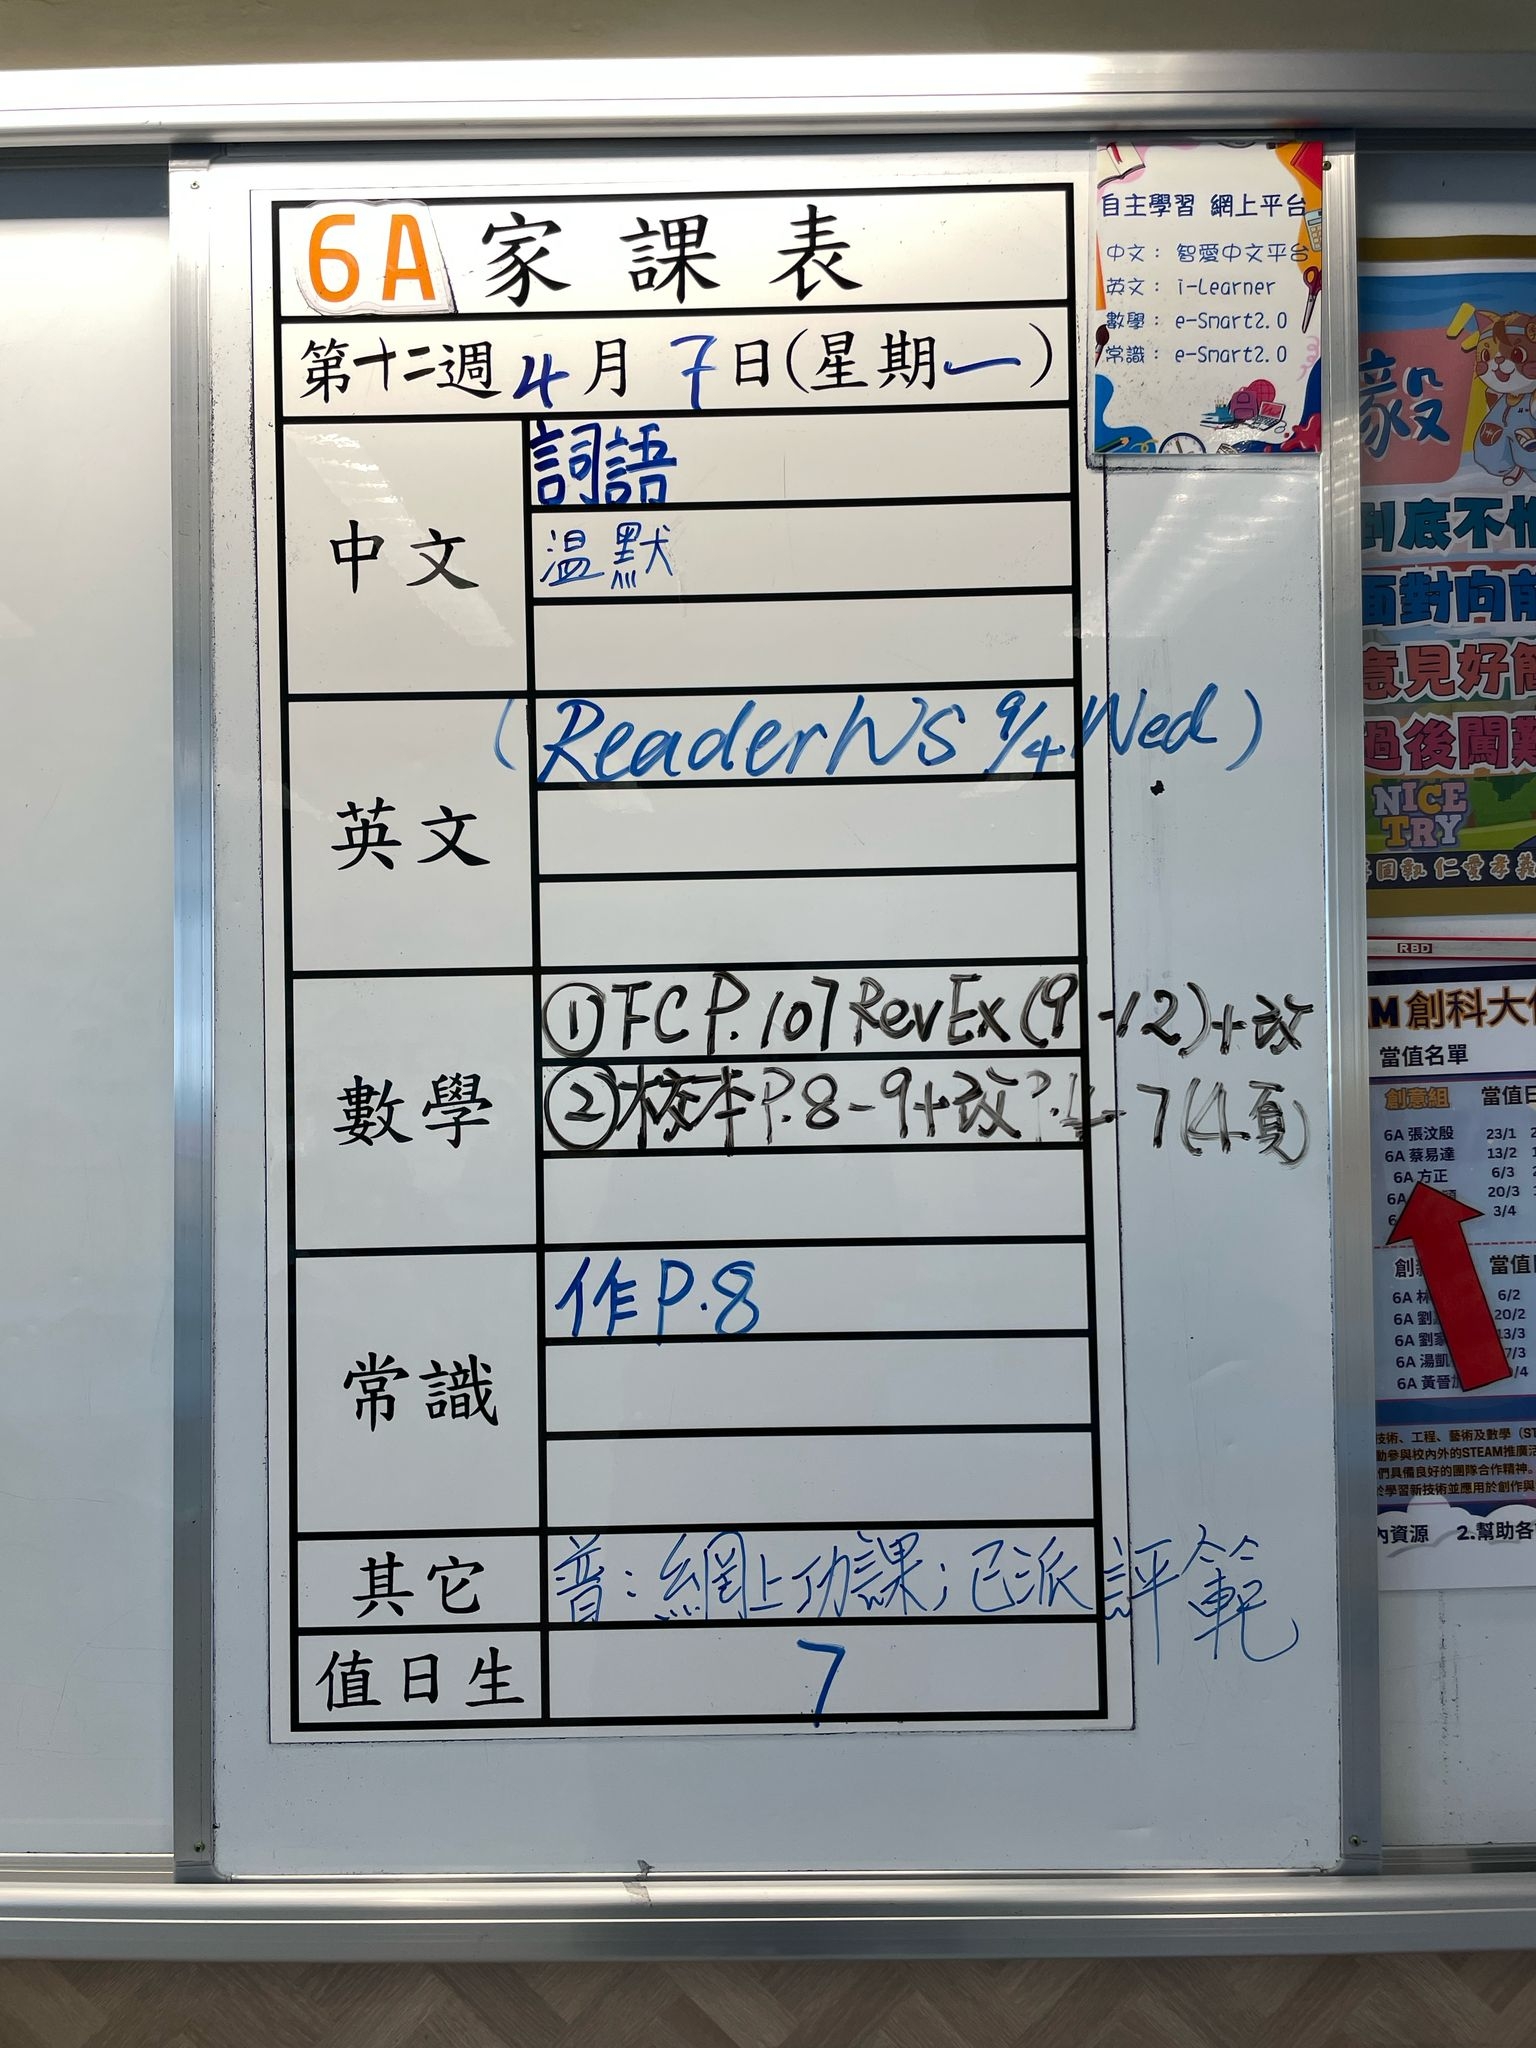 6A 家課表
第十二週 4月 7日(星期一)
中文
詞語
温默
英文
(Reader WS 9/4 Wed)
數學
①FC P.107 RevEx (9-12)+改
②校本P.8-9+改P.4-7(4頁)
常識
作P.8
其它
普:網上功課;已派評範
值日生
7
自主學習 網上平台
中文: 智愛中文平台
英文: i-Learner
數學: e-Smart2.0
常識: e-Smart2.0
毅
到底不
面對向前
意見好
過後闖難
NICE
TRY
仁愛孝義
RBD
創科大
當值名單
創意組 當值日
6A 張汶殷 23/1
6A 蔡易達 13/2
6A 方正 6/3
6A 20/3
3/4
當值
6A 林 6/2
6A 劉 20/2
6A 劉家 13/3
6A 湯凱
6A 黃晉
技術、工程、藝術及數學 (ST
動參與校內外的STEAM推廣活
們具備良好的團隊合作精神。
於學習新技術並應用於創作與
內資源 2.幫助各